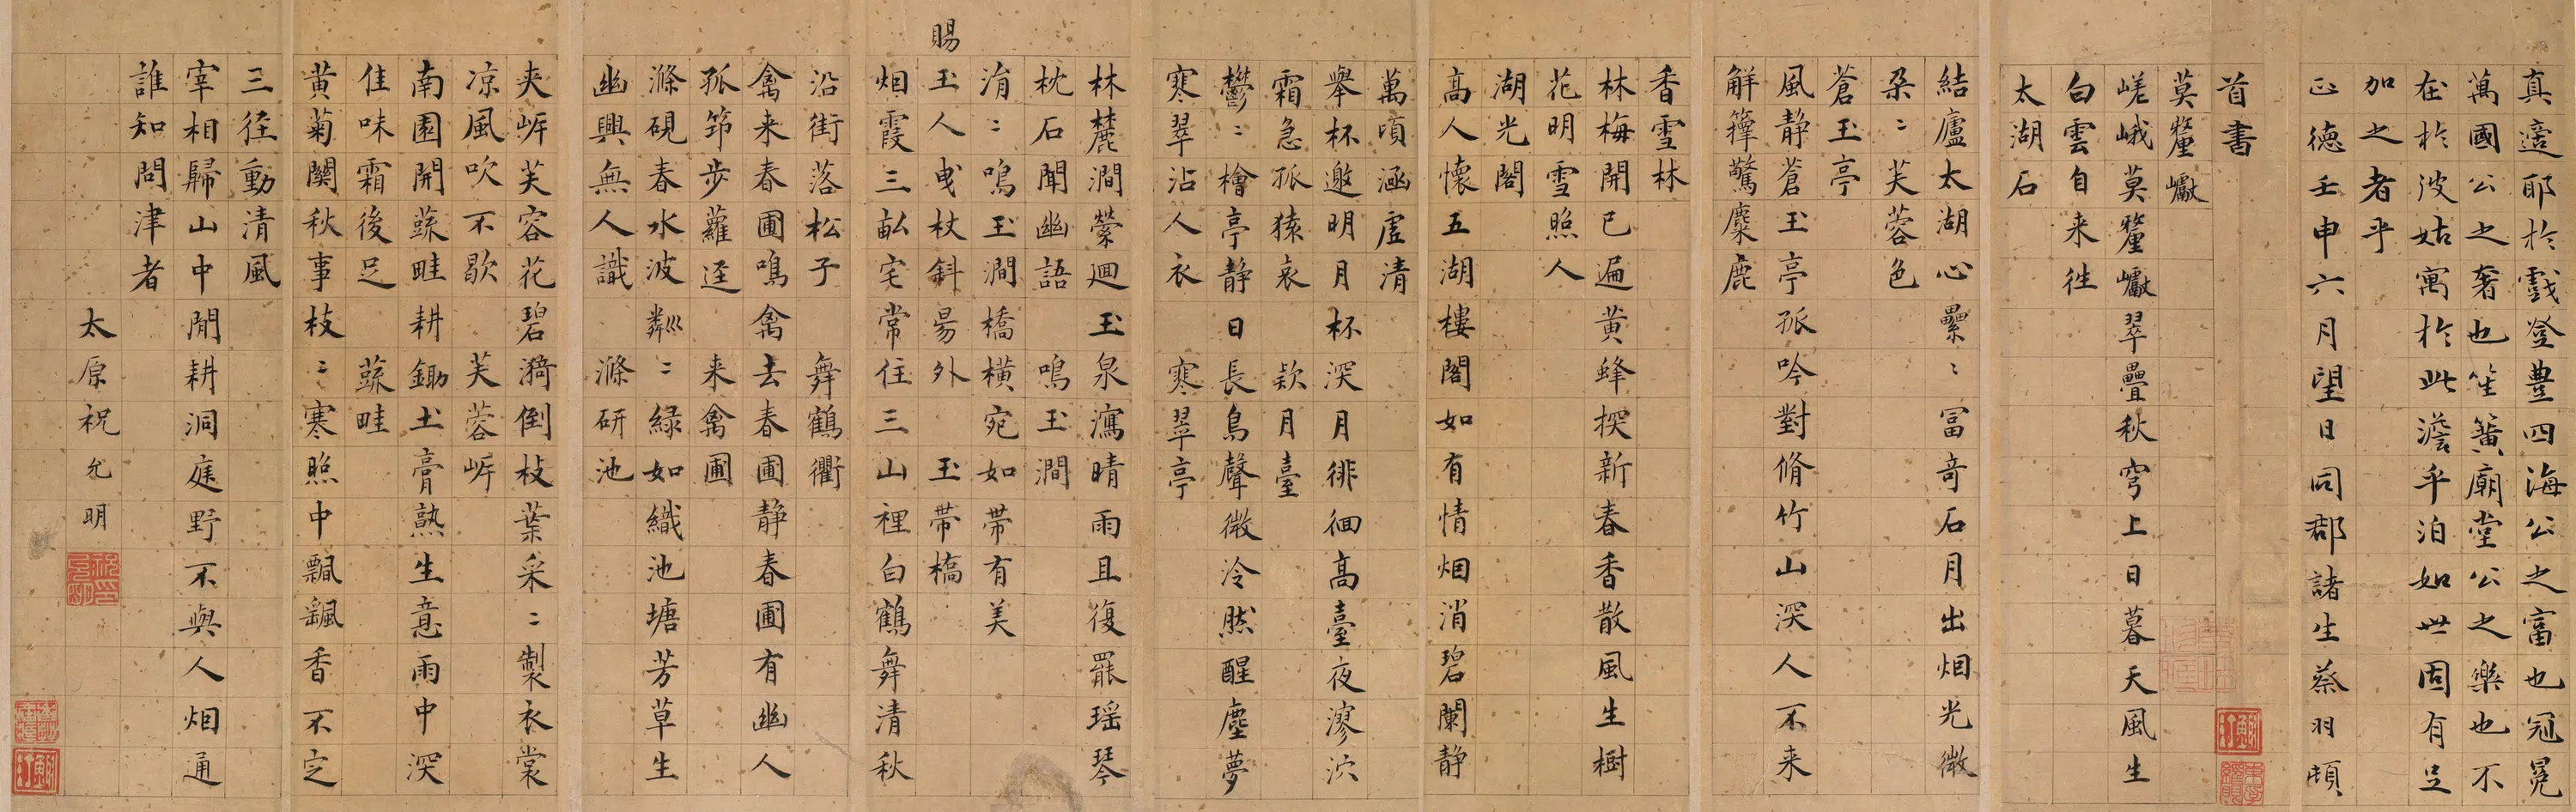 真適耶於戲登豊四海公之富也冠冕
萬國公之奢也笙簧廟堂公之樂也不
在於彼姑寓於此澹乎泊如世固有足
加之者乎
正德壬申六月望日同郡諸生蔡羽頓
首書
莫釐巘
嵯峨莫釐巘翠疊秋穹上日暮天風生
白雲自来往
太湖石
結廬太湖心纍〻冨奇石月出烟光微
朶〻芙蓉色
蒼玉亭
風静蒼玉亭孤吟對脩竹山深人不来
解籜驚麋鹿
香雪林
林梅開已遍黄蜂探新春香散風生樹
花明雪照人
湖光閣
高人懷五湖樓閣如有情烟消碧闌静
萬頃涵虚清
舉杯邀明月杯深月徘徊高臺夜寥泬
霜急孤猿哀 欵月臺
鬱〻檜亭静日長鳥聲微冷然醒塵夢
寒翠沾人衣 寒翠亭
林麓澗縈迴玉泉瀉晴雨且復罷瑶琴
枕石聞幽語 鳴玉澗
㳙〻鳴玉澗橋横宛如帶有美
賜玉人曳杖斜昜外 玉帶橋
烟霞三畝宅常住三山裡白鶴舞清秋
沿街落松子 舞鶴衢
禽来春圃鳴禽去春圃静春圃有幽人
孤筇步蘿逕 来禽圃
滌硯春水波粼〻緑如織池塘芳草生
幽興無人識 滌研池
夾㟁芙容花碧漪倒枝葉采〻製衣裳
凉風吹不歇 芙蓉㟁
南園開蔬畦耕鋤土膏熟生意雨中深
佳味霜後足 蔬畦
黄菊闌秋事枝〻寒照中飄飄香不定
三径動清風
宰相歸山中閒耕洞庭野不與人烟通
誰知問津者
太原祝允明